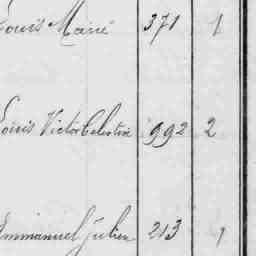 Louis Marie 371 1
Louis Victor Celestin 992 2
Emmanuel Julien 213 1